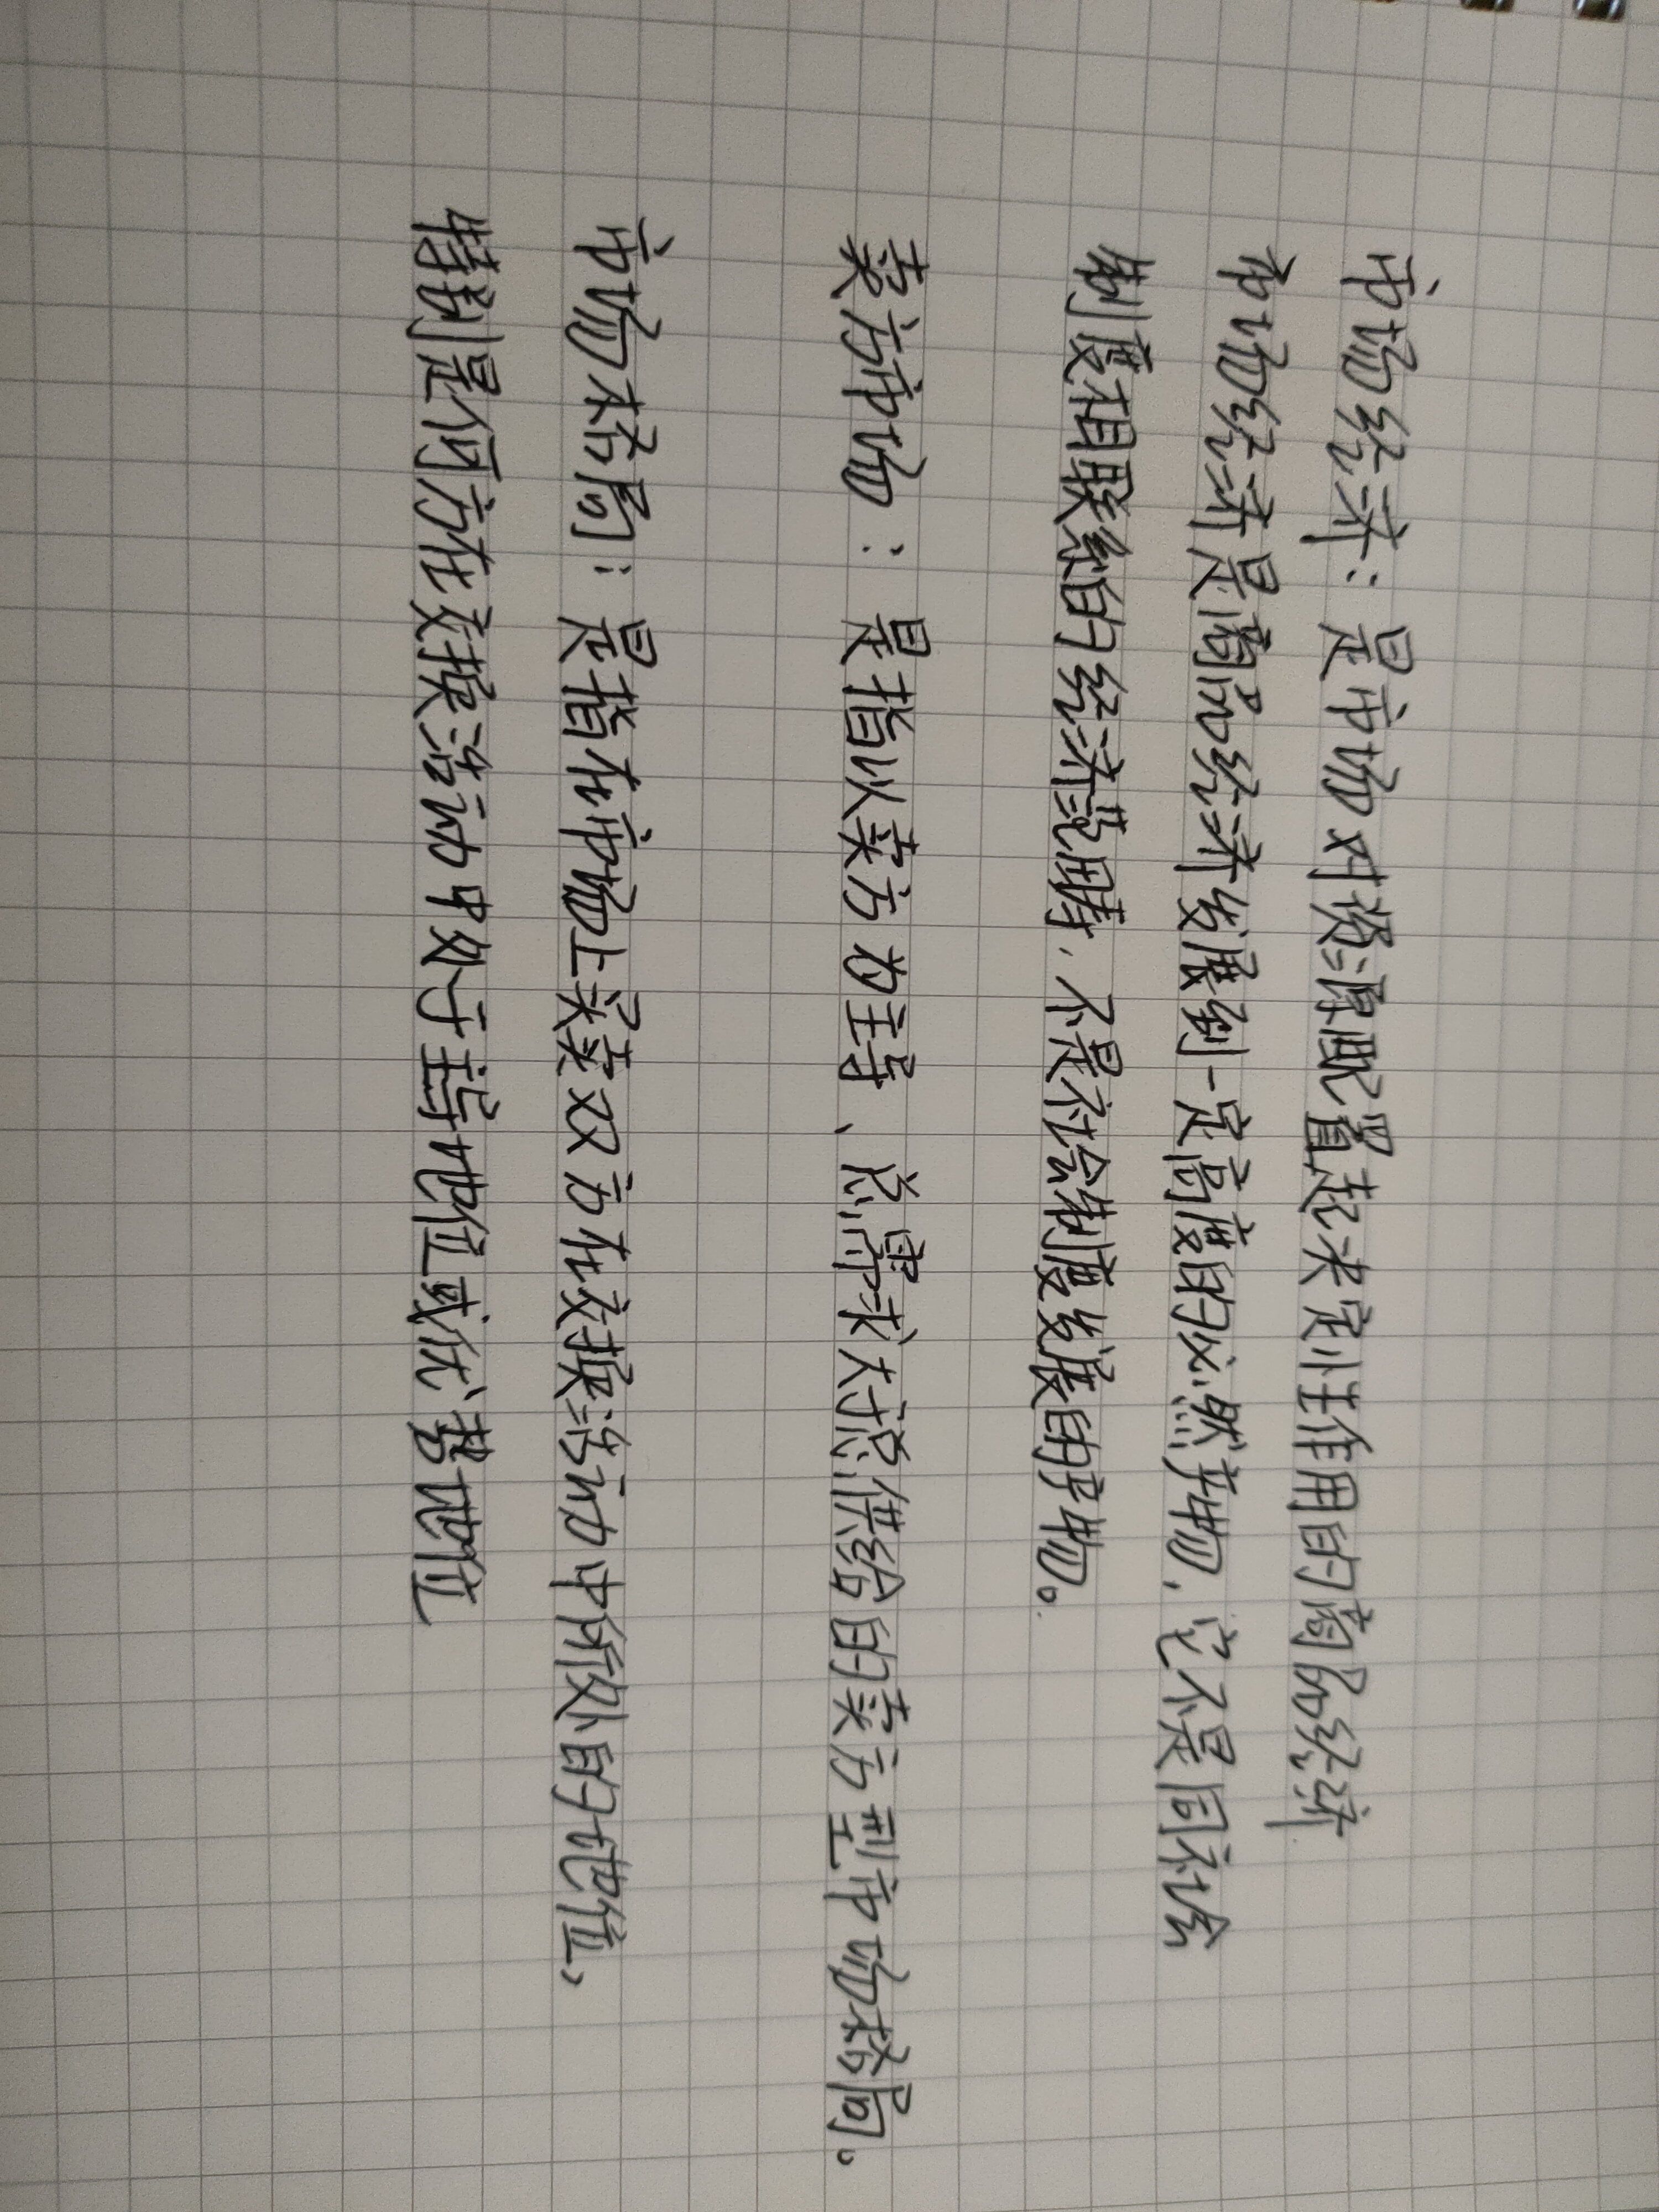 市场经济：是市场对资源配置起决定性作用的商品经济
市场经济是商品经济发展到一定高度的必然产物，它不是同社会
制度相联络的经济范畴，不是社会制度发展的产物。
卖方市场：是指以卖方为主导、总需求大于总供给的卖方型市场格局。
市场格局：是指在市场上买卖双方在交换活动中所处的地位、
特别是何方在交换活动中处于主导地位或优势地位